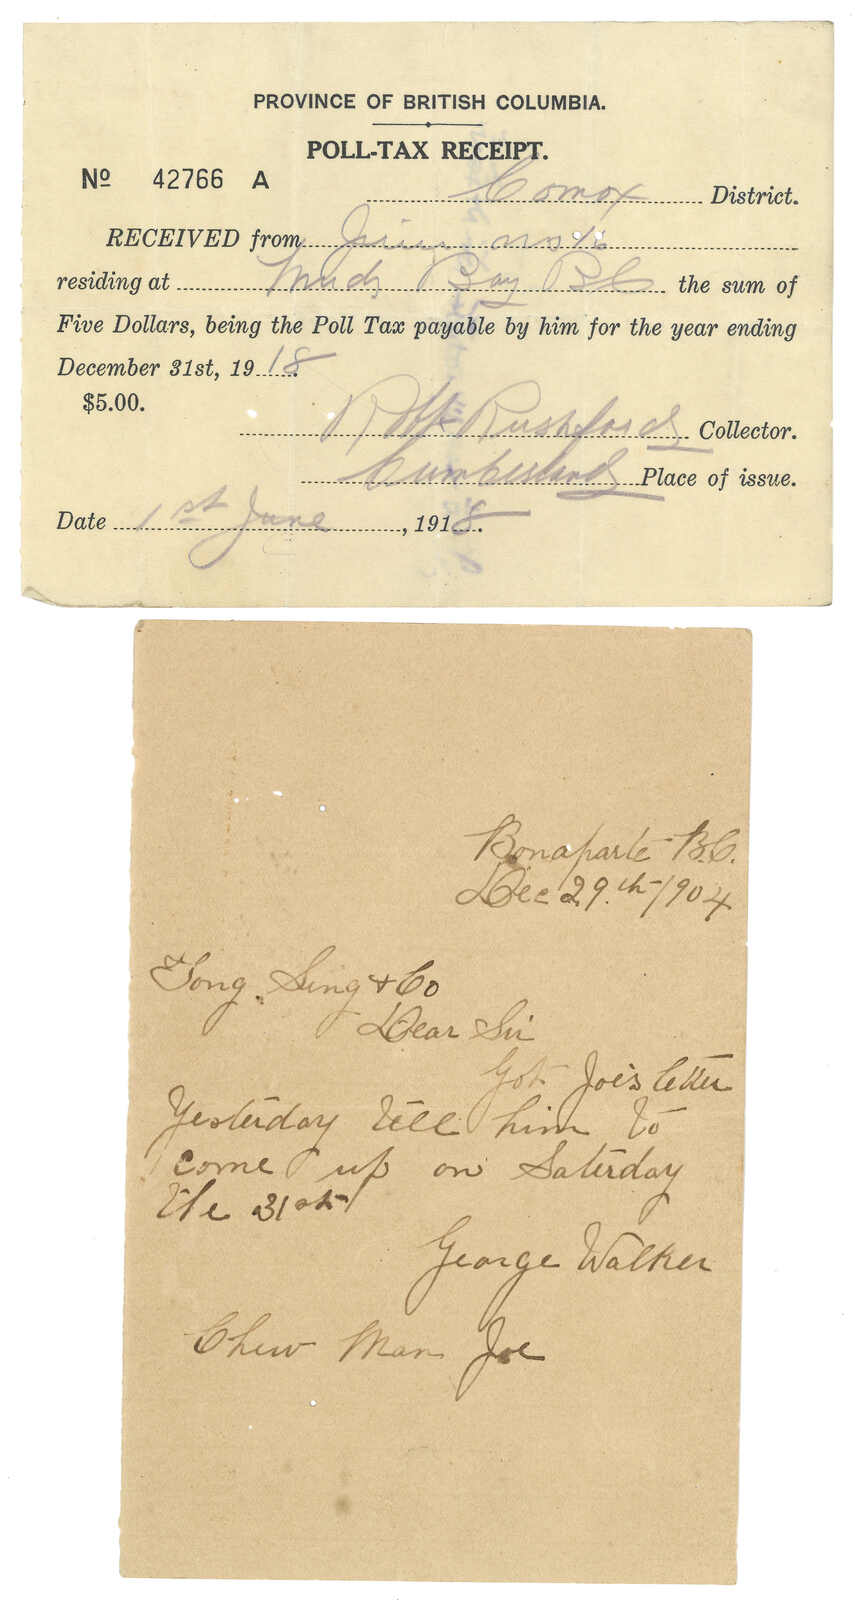 PROVINCE OF BRITISH COLUMBIA.
POLL-TAX RECEIPT.
No 42766 A
Comox District.
RECEIVED from Jim No 16
residing at Mud Bay BC the sum of
Five Dollars, being the Poll Tax payable by him for the year ending
December 31st, 1918.
$5.00.
Robt Rushford Collector.
Cumberland Place of issue.
Date 1st June, 1918.
Bonaparte B.C.
Dec 29.th 1904
Tong Sing & Co
Dear Sir
Got Joe's letter
Yesterday tell him to
come up on Saterday
the 31st
George Walker
Chew Man Joe